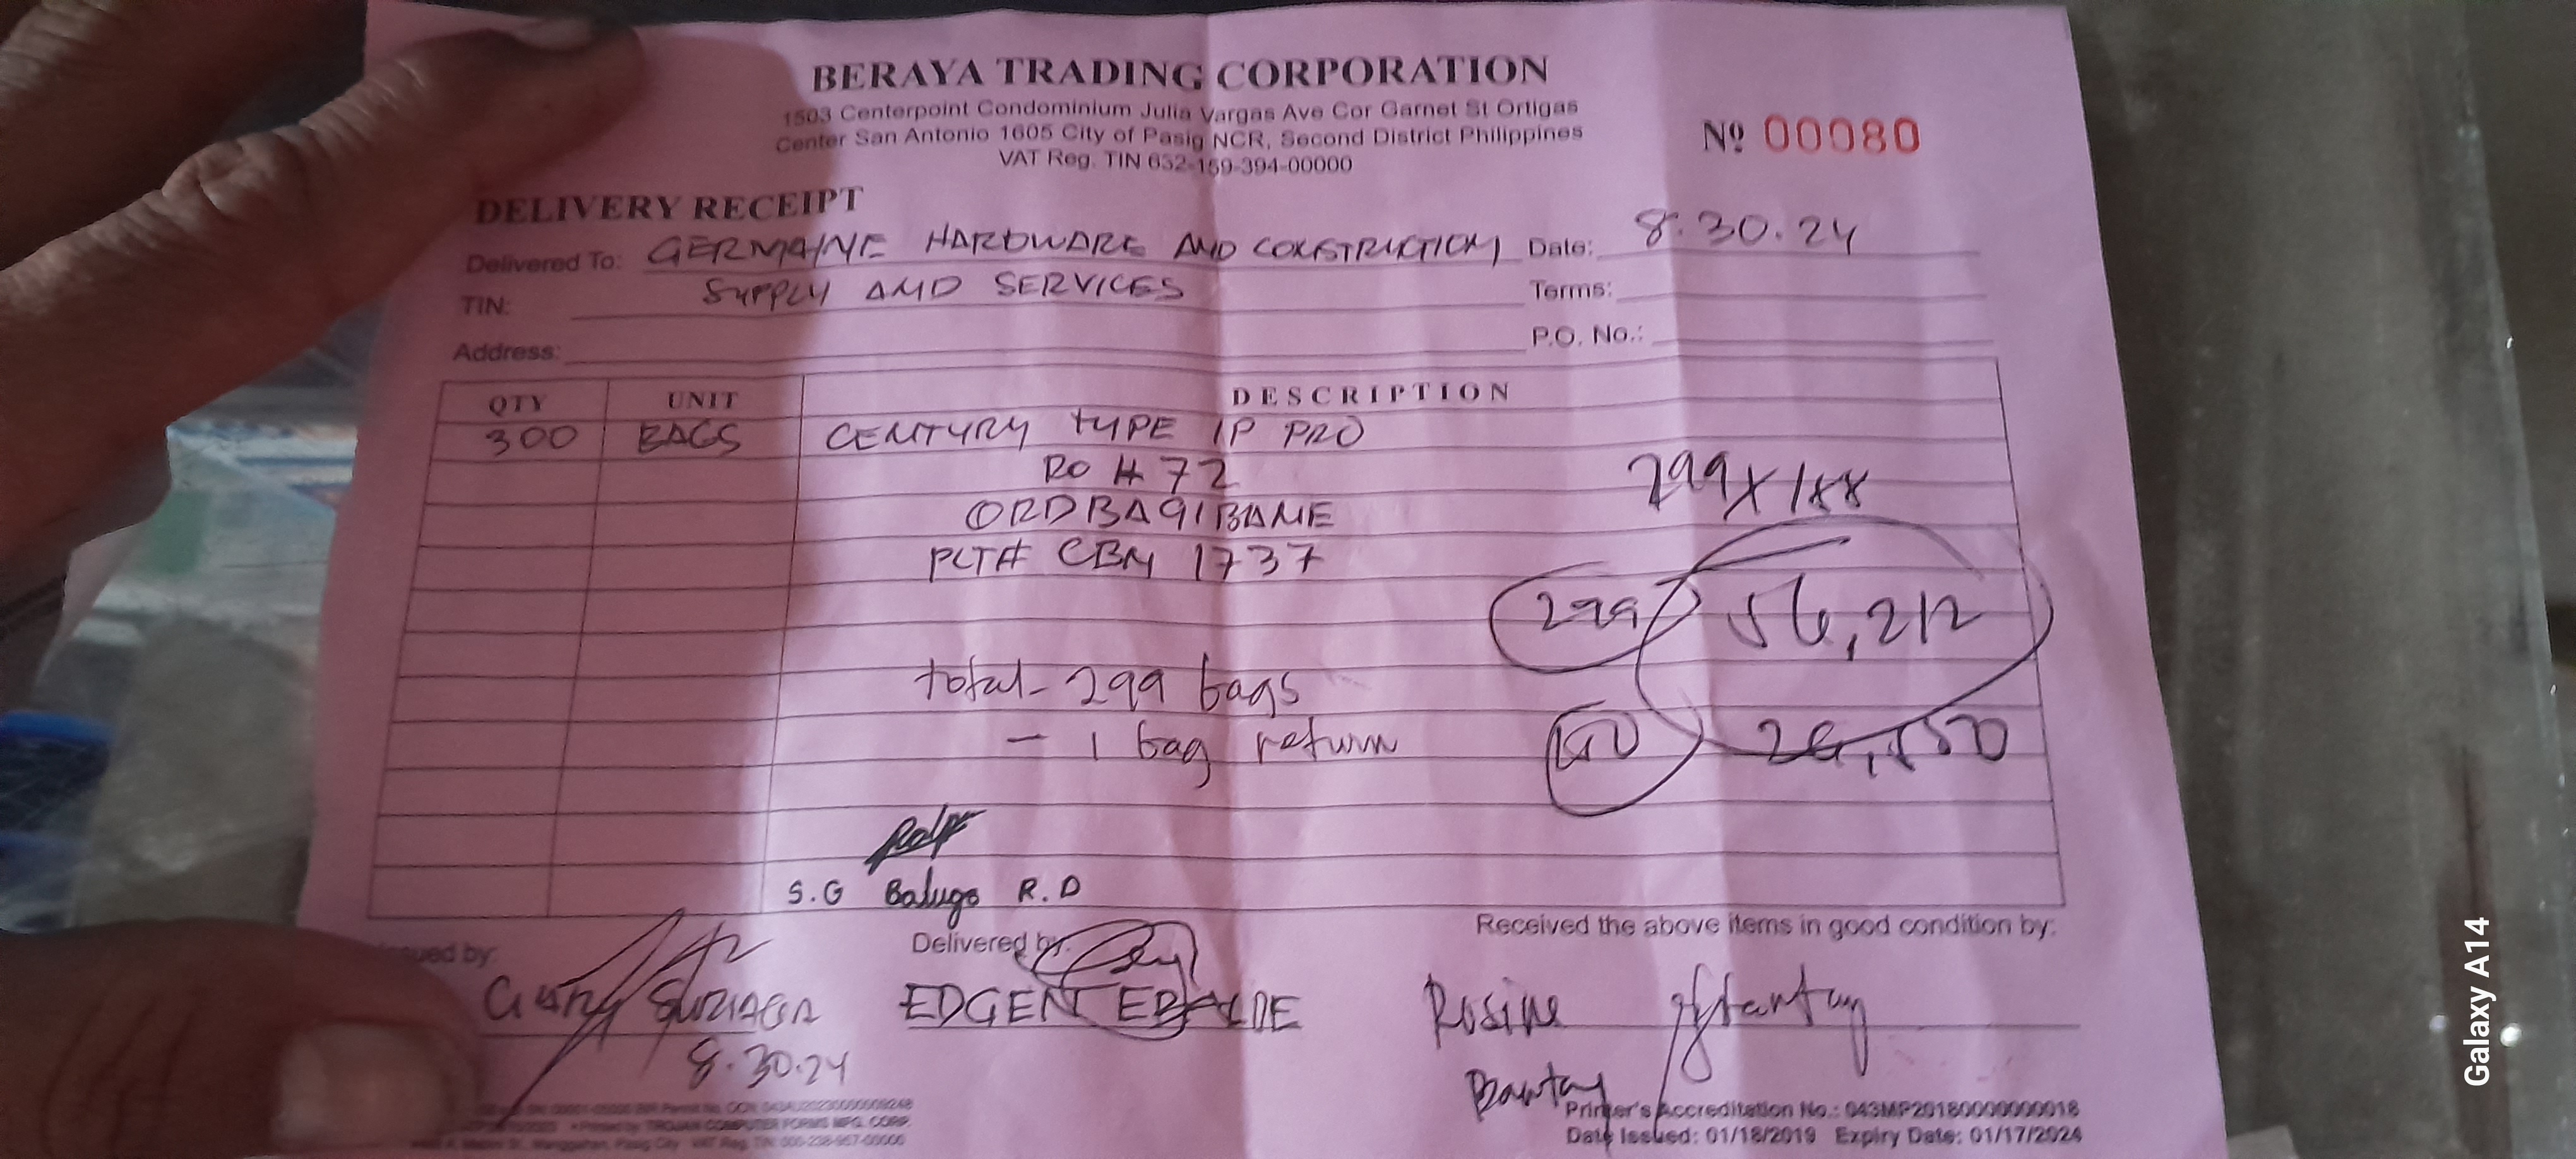 BERAYA TRADING CORPORATION
1503 Centerpoint Condominium Julia Vargas Ave Cor Garnet St Ortigas
Center San Antonio 1605 City of Pasig NCR, Second District Philippines
VAT Reg. TIN 632-159-394-00000
Nº 00080
DELIVERY RECEIPT
Delivered To: GERMAINE HARDWARE AND CONSTRUCTION
Date: 8.30.24
TIN: SUPPLY AND SERVICES
Terms:
P.O. No.:
Address:
QTY UNIT DESCRIPTION
300 BAGS CENTURY TYPE 1P PRO
RO # 72
299 x 188
ORDBAG1BAME
PLT# CBM 1737
299 56,212
total - 299 bags
- 1 bag return
150
S.G Balugo R.D
Received the above items in good condition by:
Delivered by:
by:
SURIAGA
EDGENT EBALDE
Rosine
8.30.24
Bantay
Printer's Accreditation No.: 043MP20180000000018
Date Issued: 01/18/2019 Expiry Date: 01/17/2024
TROJAN COMPUTER FORMS MFG. CORP.
Pasig City VAT Reg. TIN
Galaxy A14